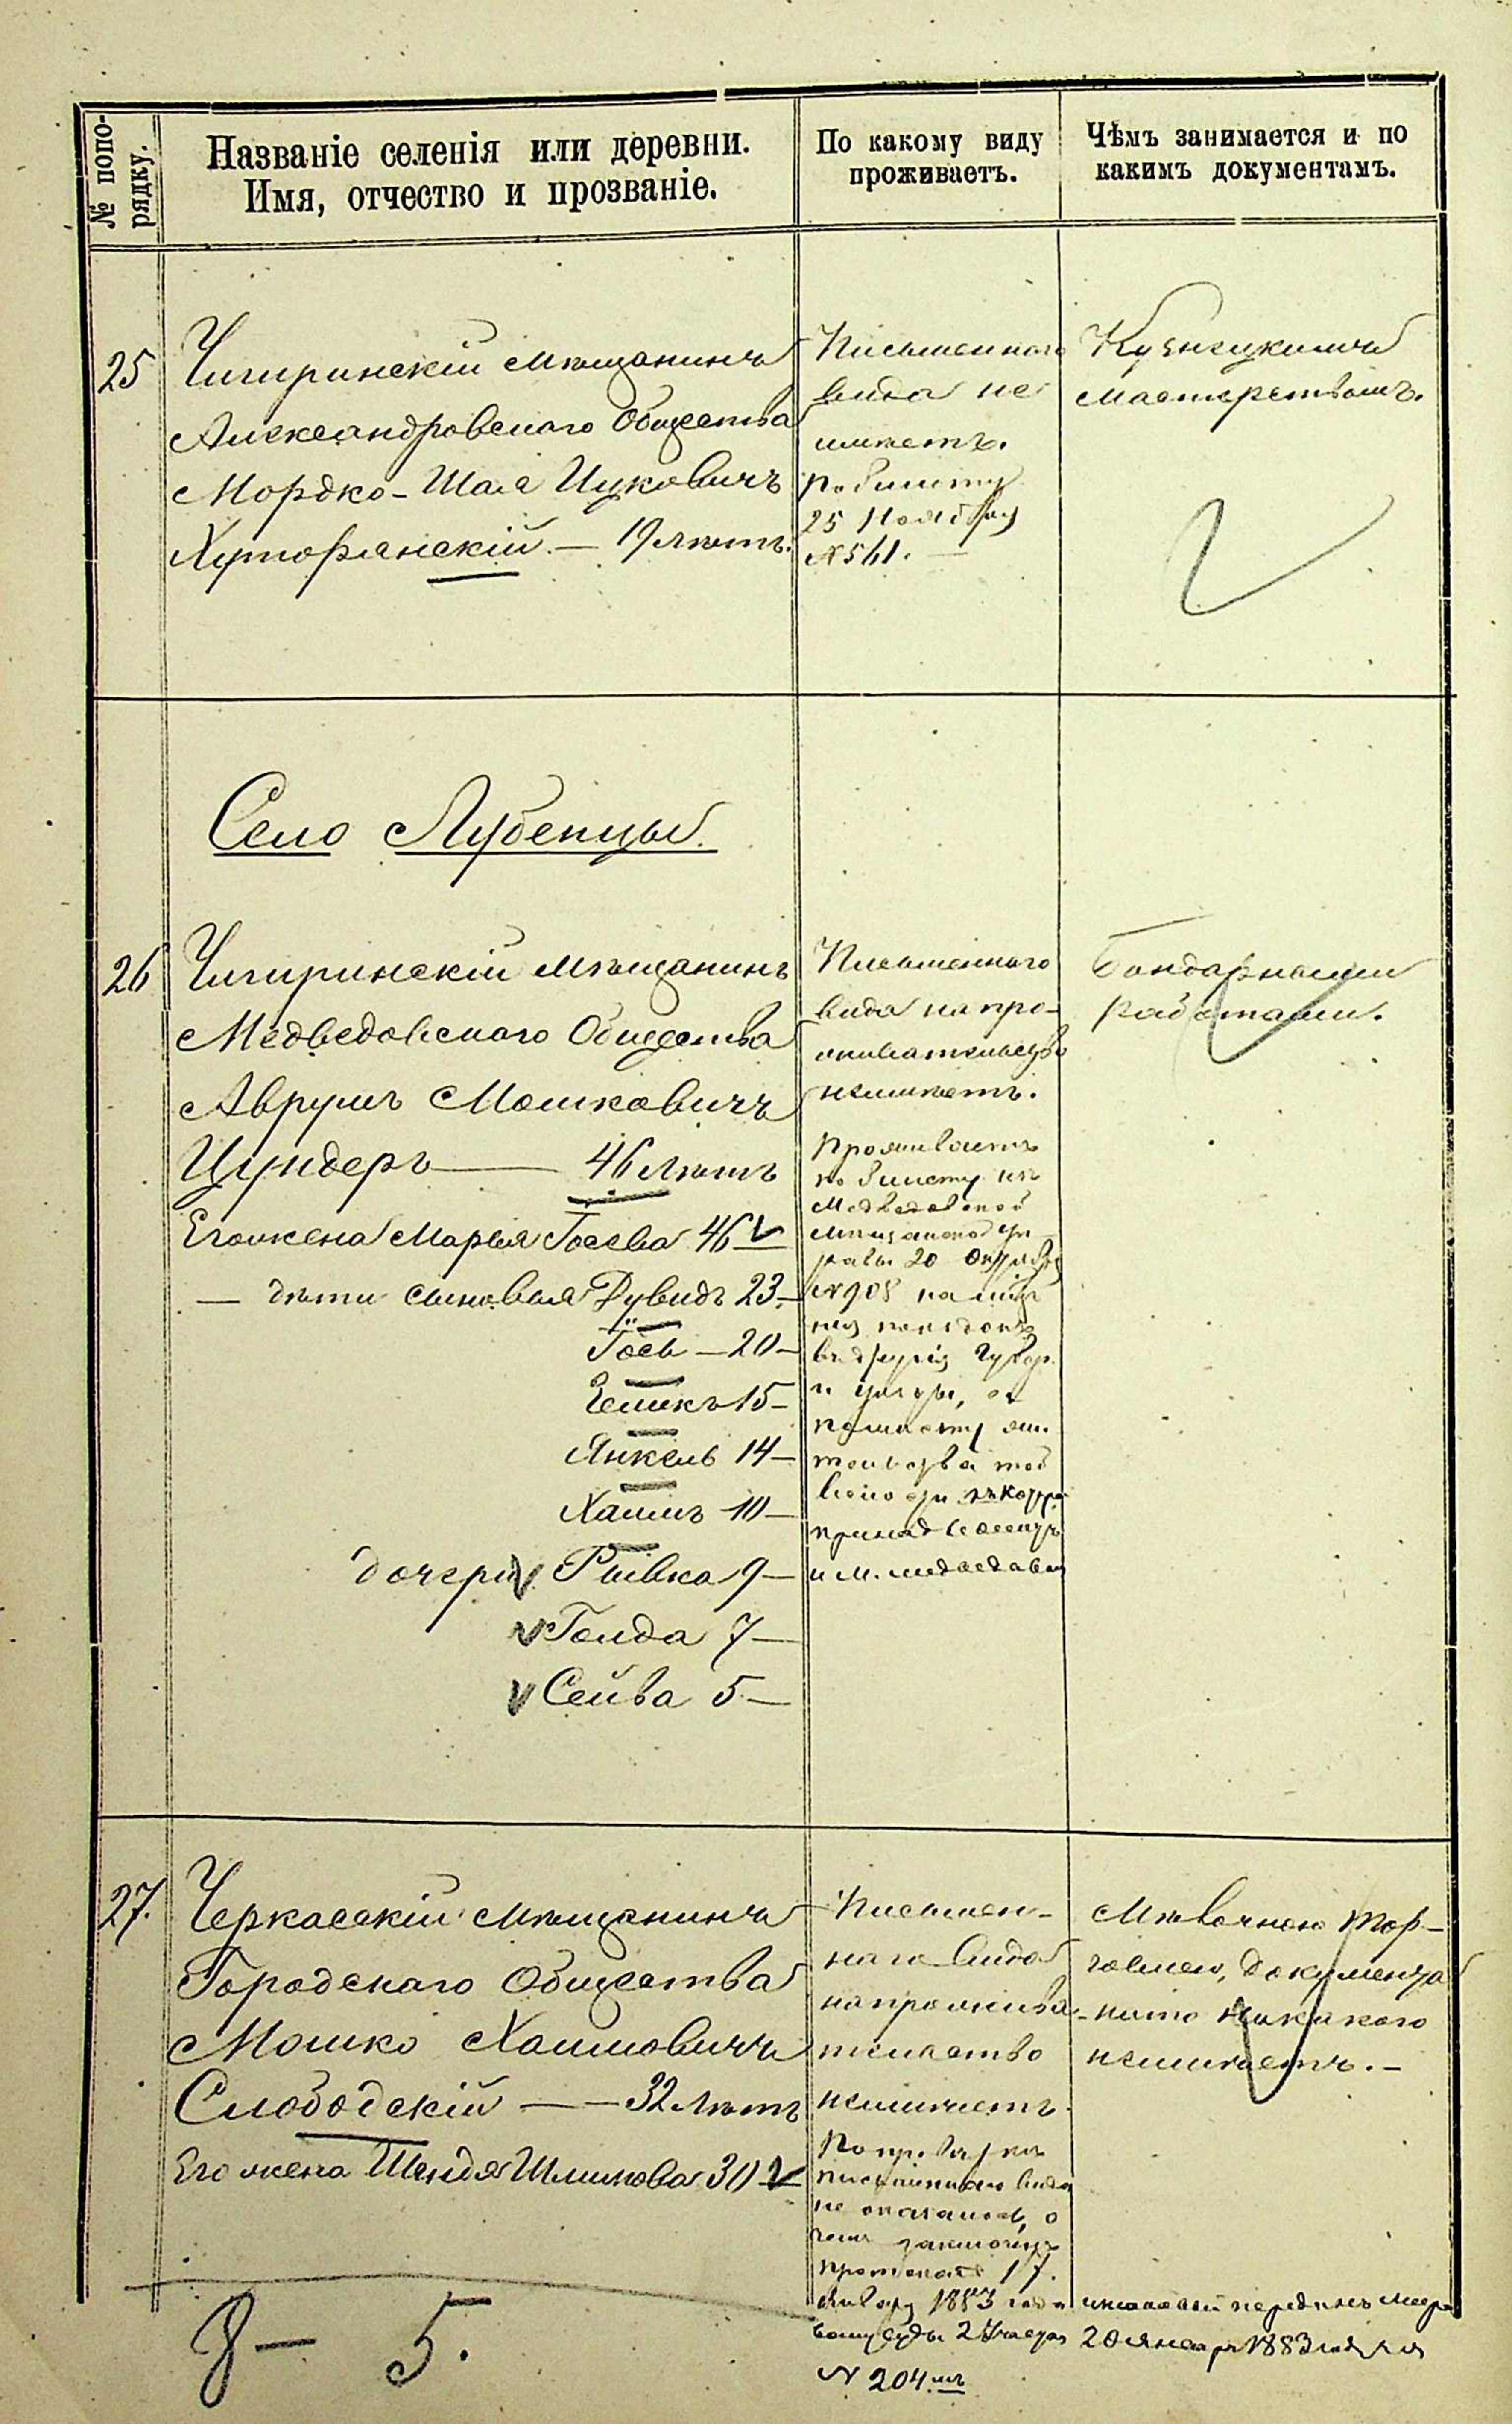 № попо-
рядку.
Названіе селенія или деревни.
Имя, отчество и прозваніе.
По какому виду
проживаетъ.
Чѣмъ занимается и по
какимъ документамъ.
25
Чигиринскій мѣщанинъ
Александровского Общества
Мордко-Шая Ицковичъ
Хуторянскій. — 19 лѣтъ.
Письменного
вида не
имѣетъ.
По билету
25 Ноября
№ 561. —
Кузнецкимъ
мастерствомъ.
Село Лубенцы.
26
Чигиринскій мѣщанинъ
Медведовского Общества
Аврумъ Мошковичъ
Цундеръ — 46 лѣтъ
Его жена Марья Іосева 46
— дѣти сыновья Дувидъ 23 —
Іось — 20 —
Гешкъ 15 —
Янкель 14 —
Хаимъ 10 —
дочери Рывка 9 —
Голда 7 —
Сейва 5 —
Письменного
вида на про-
живательство
неимѣетъ.
Проживаетъ
по билету изъ
Медведовской
мѣщанской уп
равы 20 Октября
№ 905
и М. Медведовки
Бондарными
работами.
27.
Черкасскій мѣщанинъ
Городскаго Общества
Мошко Хаимовичъ
Слободскій — — 32 лѣтъ
Его жена Шендя Шлиомова 30
Письмен-
наго вида
на прожива-
тельство
неимѣетъ.
По провѣркѣ
письменнаго вида
не оказалось, о
чемъ заключенъ
протоколъ 17.
Января 1883 года и таковый переданъ Миро
вому судьѣ 2 Участка 20 Января 1883 года за
№ 204.мъ
Мѣлочною тор-
говлею, документа
на то никакого
неимѣетъ. —
8 — 5.